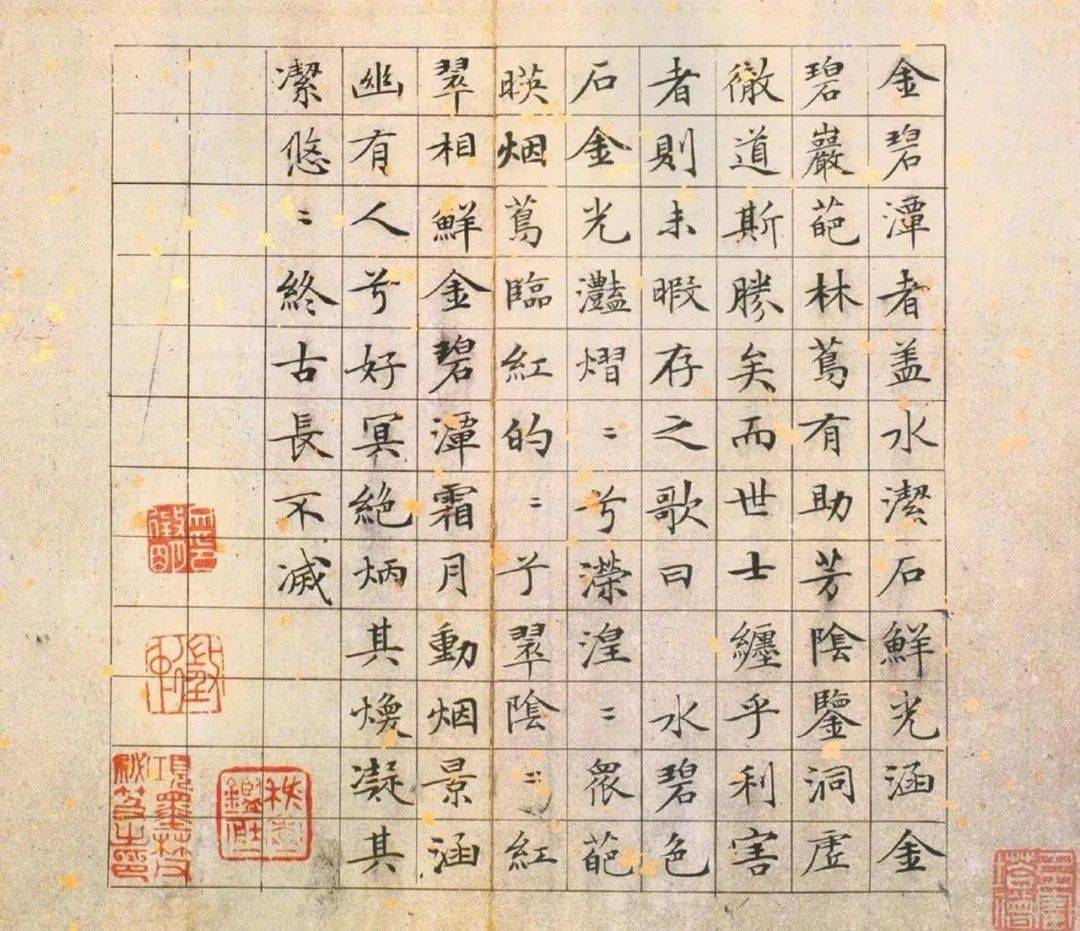 金碧潭者盖水潔石鮮光涵金
碧巖葩林蔦有助芳陰鑒洞虚
徹道斯勝矣而世士纏乎利害
者則未暇存之歌曰 水碧色
石金光灩熠〻兮濴湟〻衆葩
暎烟蔦臨紅的〻兮翠陰〻紅
翠相鮮金碧潭霜月動烟景涵
幽有人兮好冥絶炳其煥凝其
潔悠〻終古長不滅